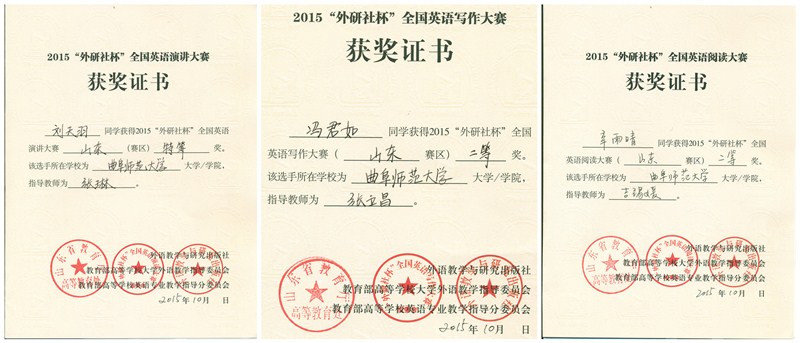 2015 “外研社杯” 全国英语演讲大赛
获奖证书
刘天羽 同学获得2015 “外研社杯” 全国英语
演讲大赛（ 山东 赛区） 特等 奖。
该选手所在学校为 曲阜师范大学 大学/学院，
指导教师为 张琳 。
外语教学与研究出版社
教育部高等学校大学外语教学指导委员会
教育部高等学校英语专业教学指导分委员会
2015年 10月 日
山东省教育厅
高等教育处
2015 “外研社杯” 全国英语写作大赛
获奖证书
冯君如 同学获得2015 “外研社杯” 全国
英语写作大赛（ 山东 赛区） 二等 奖。
该选手所在学校为 曲阜师范大学 大学/学院，
指导教师为 张亚昌 。
外语教学与研究出版社
教育部高等学校大学外语教学指导委员会
教育部高等学校英语专业教学指导分委员会
2015年 10月 日
山东省教育厅
高等教育处
2015 “外研社杯” 全国英语阅读大赛
获奖证书
辛雨晴 同学获得2015 “外研社杯” 全国
英语阅读大赛（ 山东 赛区） 二等 奖。
该选手所在学校为 曲阜师范大学 大学/学院，
指导教师为
外语教学与研究出版社
教育部高等学校大学外语教学指导委员会
教育部高等学校英语专业教学指导分委员会
2015年 10月 日
山东省教育厅
高等教育处